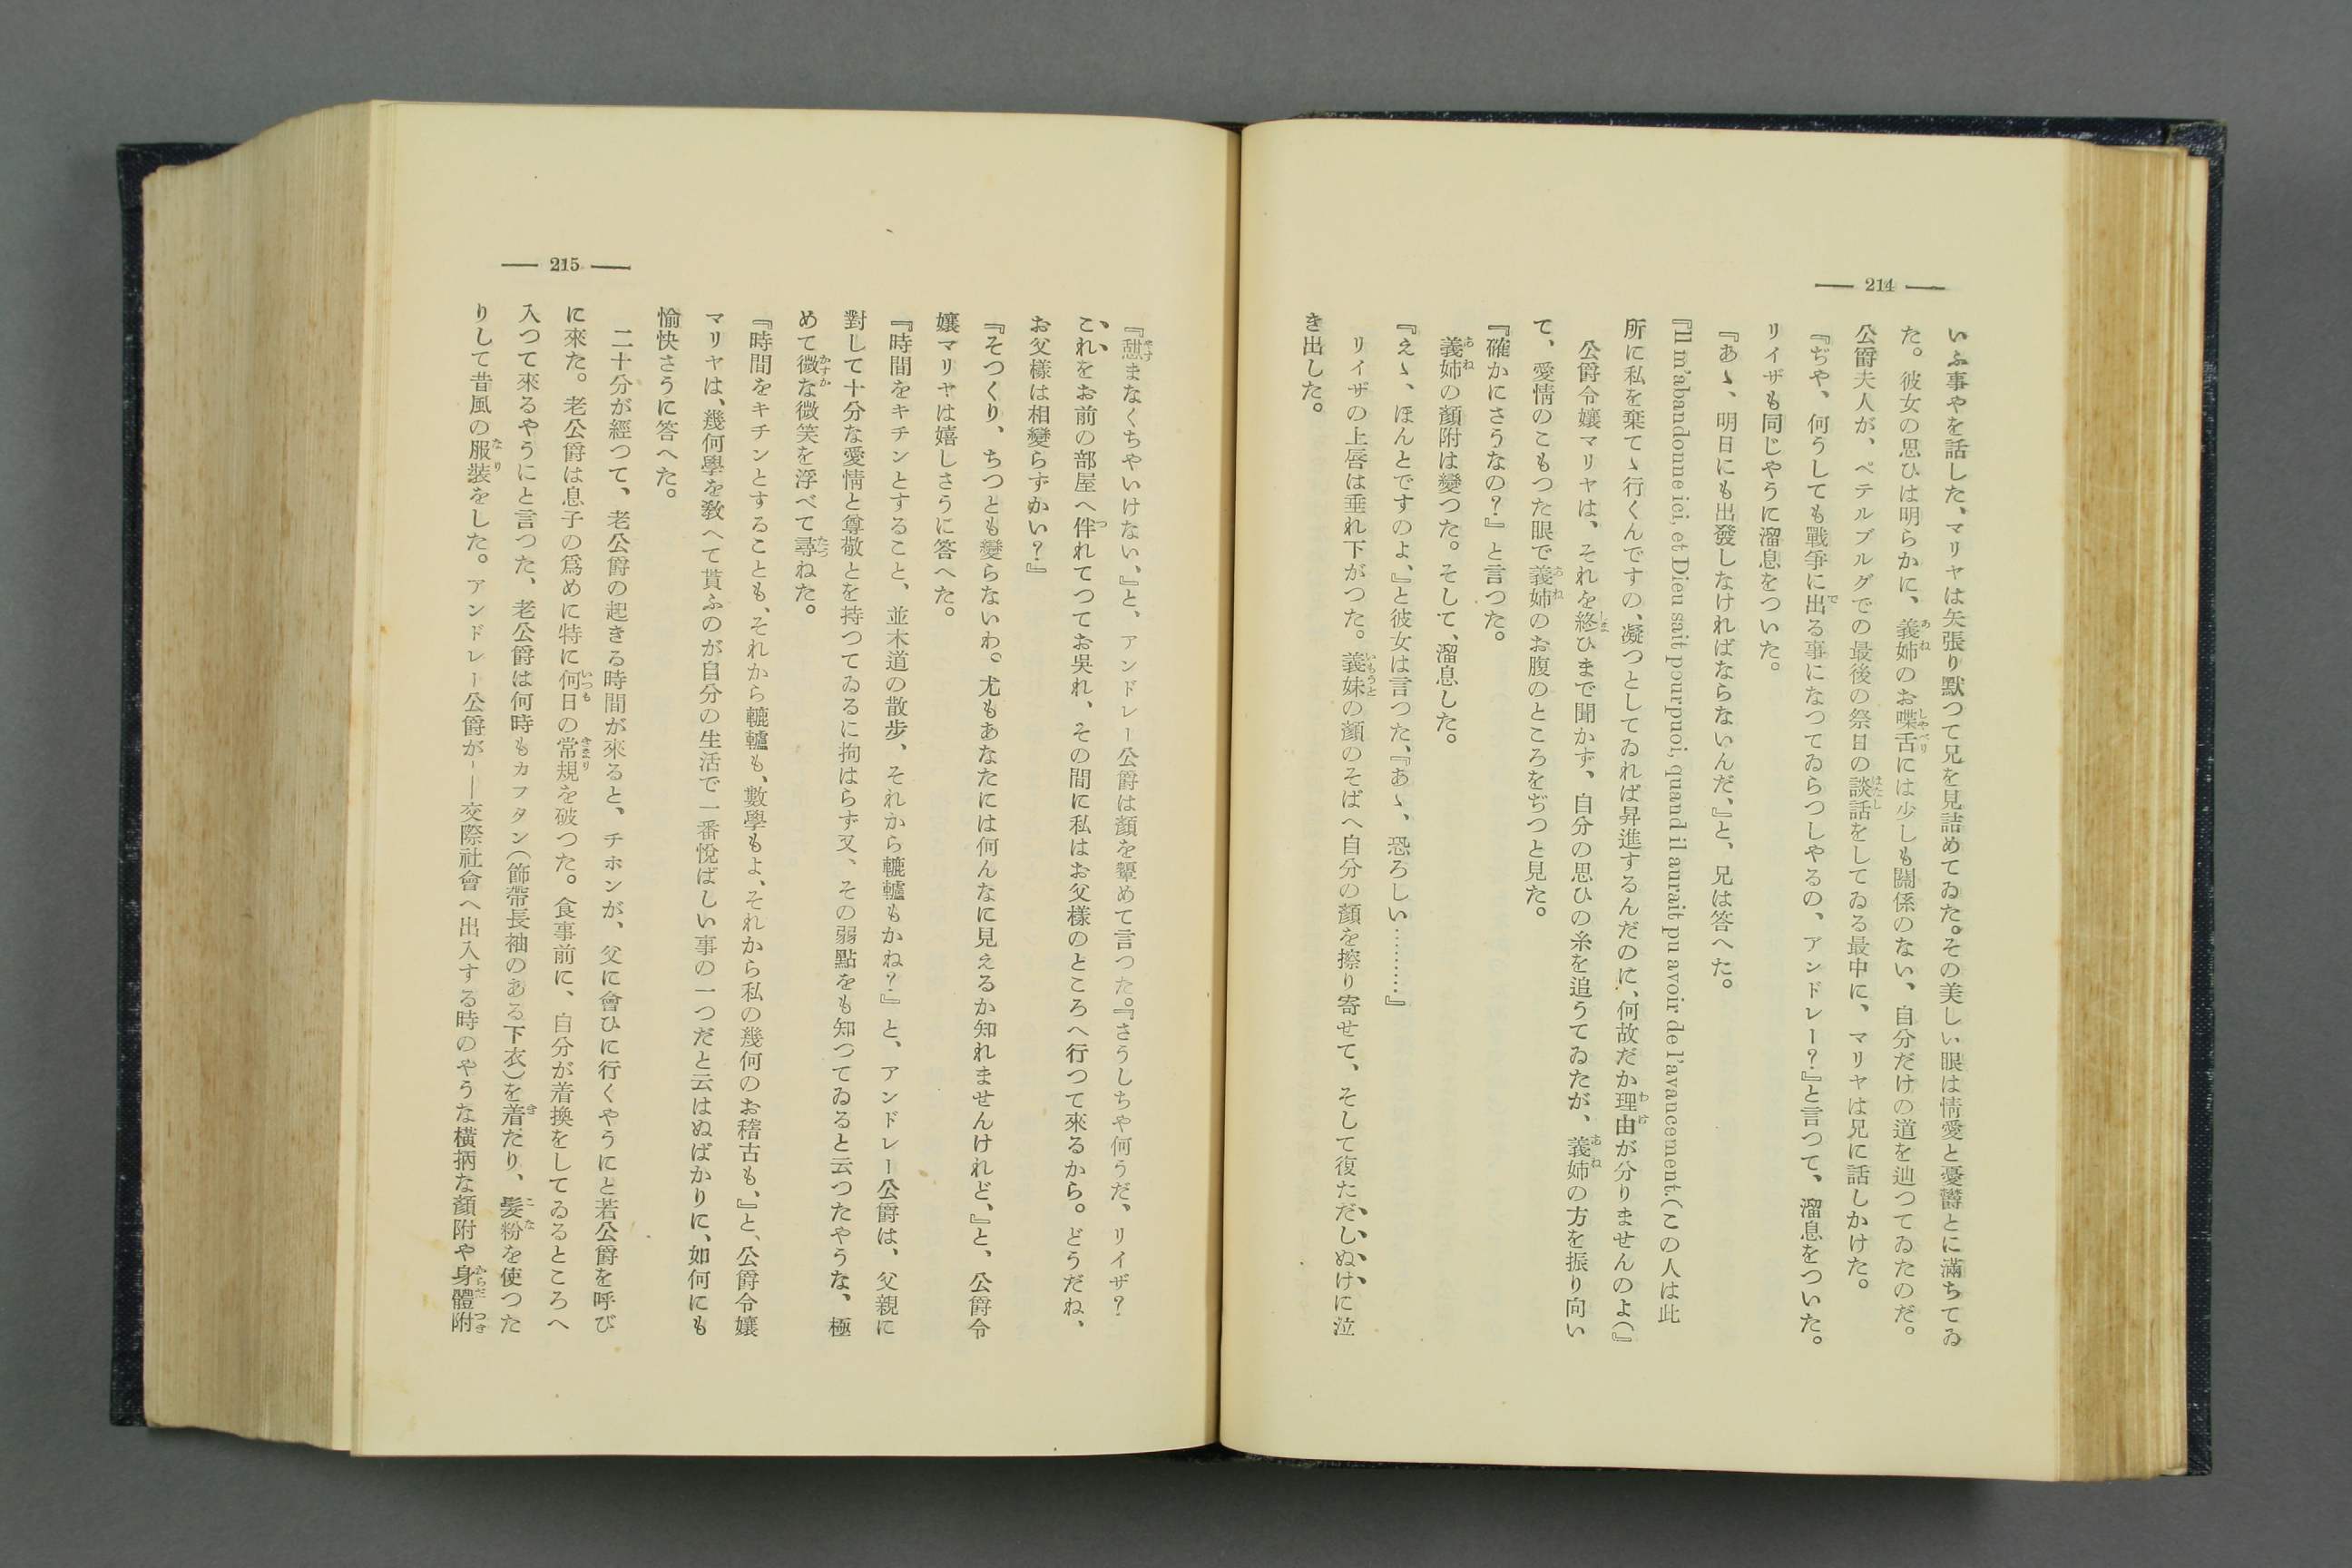 — 214 —
いふ事やを話した、マリヤは矢張り默つて兄を見詰めてゐた。その美しい眼は情愛と憂鬱とに滿ちてゐ
た。彼女の思ひは明らかに、義姉のお喋舌には少しも關係のない、自分だけの道を辿つてゐたのだ。
公爵夫人が、ペテルブルグでの最後の祭日の談話をしてゐる最中に、マリヤは兄に話しかけた。
『ぢや、何うしても戰爭に出る事になつてゐらつしやるの、アンドレー?』と言つて、溜息をついた。
リイザも同じやうに溜息をついた。
『あゝ、明日にも出發しなければならないんだ、』と、兄は答へた。
『Il m'abandonne ici, et Dieu sait pourpuoi, quand il aurait pu avoir de l'avancement.(この人は此
所に私を棄てゝ行くんですの、凝つとしてゐれば昇進するんだのに、何故だか理由が分りませんのよ(』
公爵令孃マリヤは、それを終ひまで聞かず、自分の思ひの糸を追うてゐたが、義姉の方を振り向い
て、愛情のこもつた眼で義姉のお腹のところをぢつと見た。
『確かにさうなの?』と言つた。
義姉の顏附は變つた。そして、溜息した。
『えゝ、ほんとですのよ、』と彼女は言つた、『あゝ、恐ろしい………』
リイザの上唇は垂れ下がつた。義妹の顏のそばへ自分の顏を擦り寄せて、そして復ただしぬけに泣
き出した。
— 215 —
『憇まなくちやいけない、』と、アンドレー公爵は顏を顰めて言つた。『さうしちや何うだ、リイザ?
これをお前の部屋へ伴れてつてお吳れ、その間に私はお父樣のところへ行つて來るから。どうだね、
お父樣は相變らずかい?』
『そつくり、ちつとも變らないわ。尤もあなたには何んなに見えるか知れませんけれど、』と、公爵令
孃マリヤは嬉しさうに答へた。
『時間をキチンとすること、並木道の散步、それから轆轤もかね?』と、アンドレー公爵は、父親に
對して十分な愛情と尊敬とを持つてゐるに拘はらず又、その弱點をも知つてゐると云つたやうな、極
めて微な微笑を浮べて尋ねた。
『時間をキチンとすることも、それから轆轤も、數學もよ、それから私の幾何のお稽古も、』と、公爵令孃
マリヤは、幾何學を敎へて貰ふのが自分の生活で一番悅ばしい事の一つだと云はぬばかりに、如何にも
愉快さうに答へた。
二十分が經つて、老公爵の起きる時間が來ると、チホンが、父に會ひに行くやうにと若公爵を呼び
に來た。老公爵は息子の爲めに特に何日の常規を破つた。食事前に、自分が着換をしてゐるところへ
入つて來るやうにと言つた、老公爵は何時もカフタン(飾帶長袖のある下衣)を着たり、髮粉を使つた
りして昔風の服裝をした。アンドレー公爵が——交際社會へ出入する時のやうな橫柄な顏附や身體附